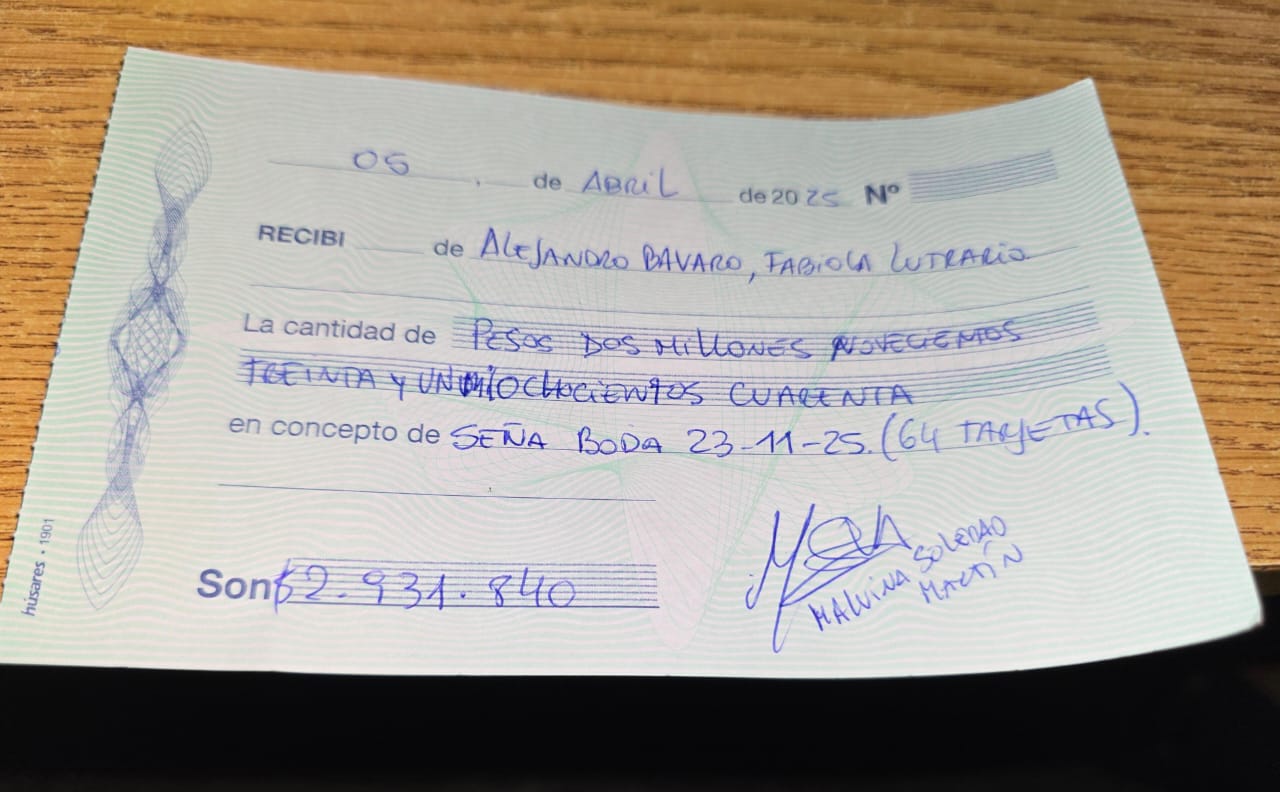 05 de ABRIL de 2025 Nº
RECIBI de ALEJANDRO BAVARO, FABIOLA LUTRARIO
La cantidad de PESOS DOS MILLONES NOVECIENTOS
TREINTA Y UN MIL OCHOCIENTOS CUARENTA
en concepto de SEÑA BODA 23-11-25. (64 TARJETAS).
Son $2.931.840
MALVINA SOLEDAD
MARTÍN
húsares • 1901